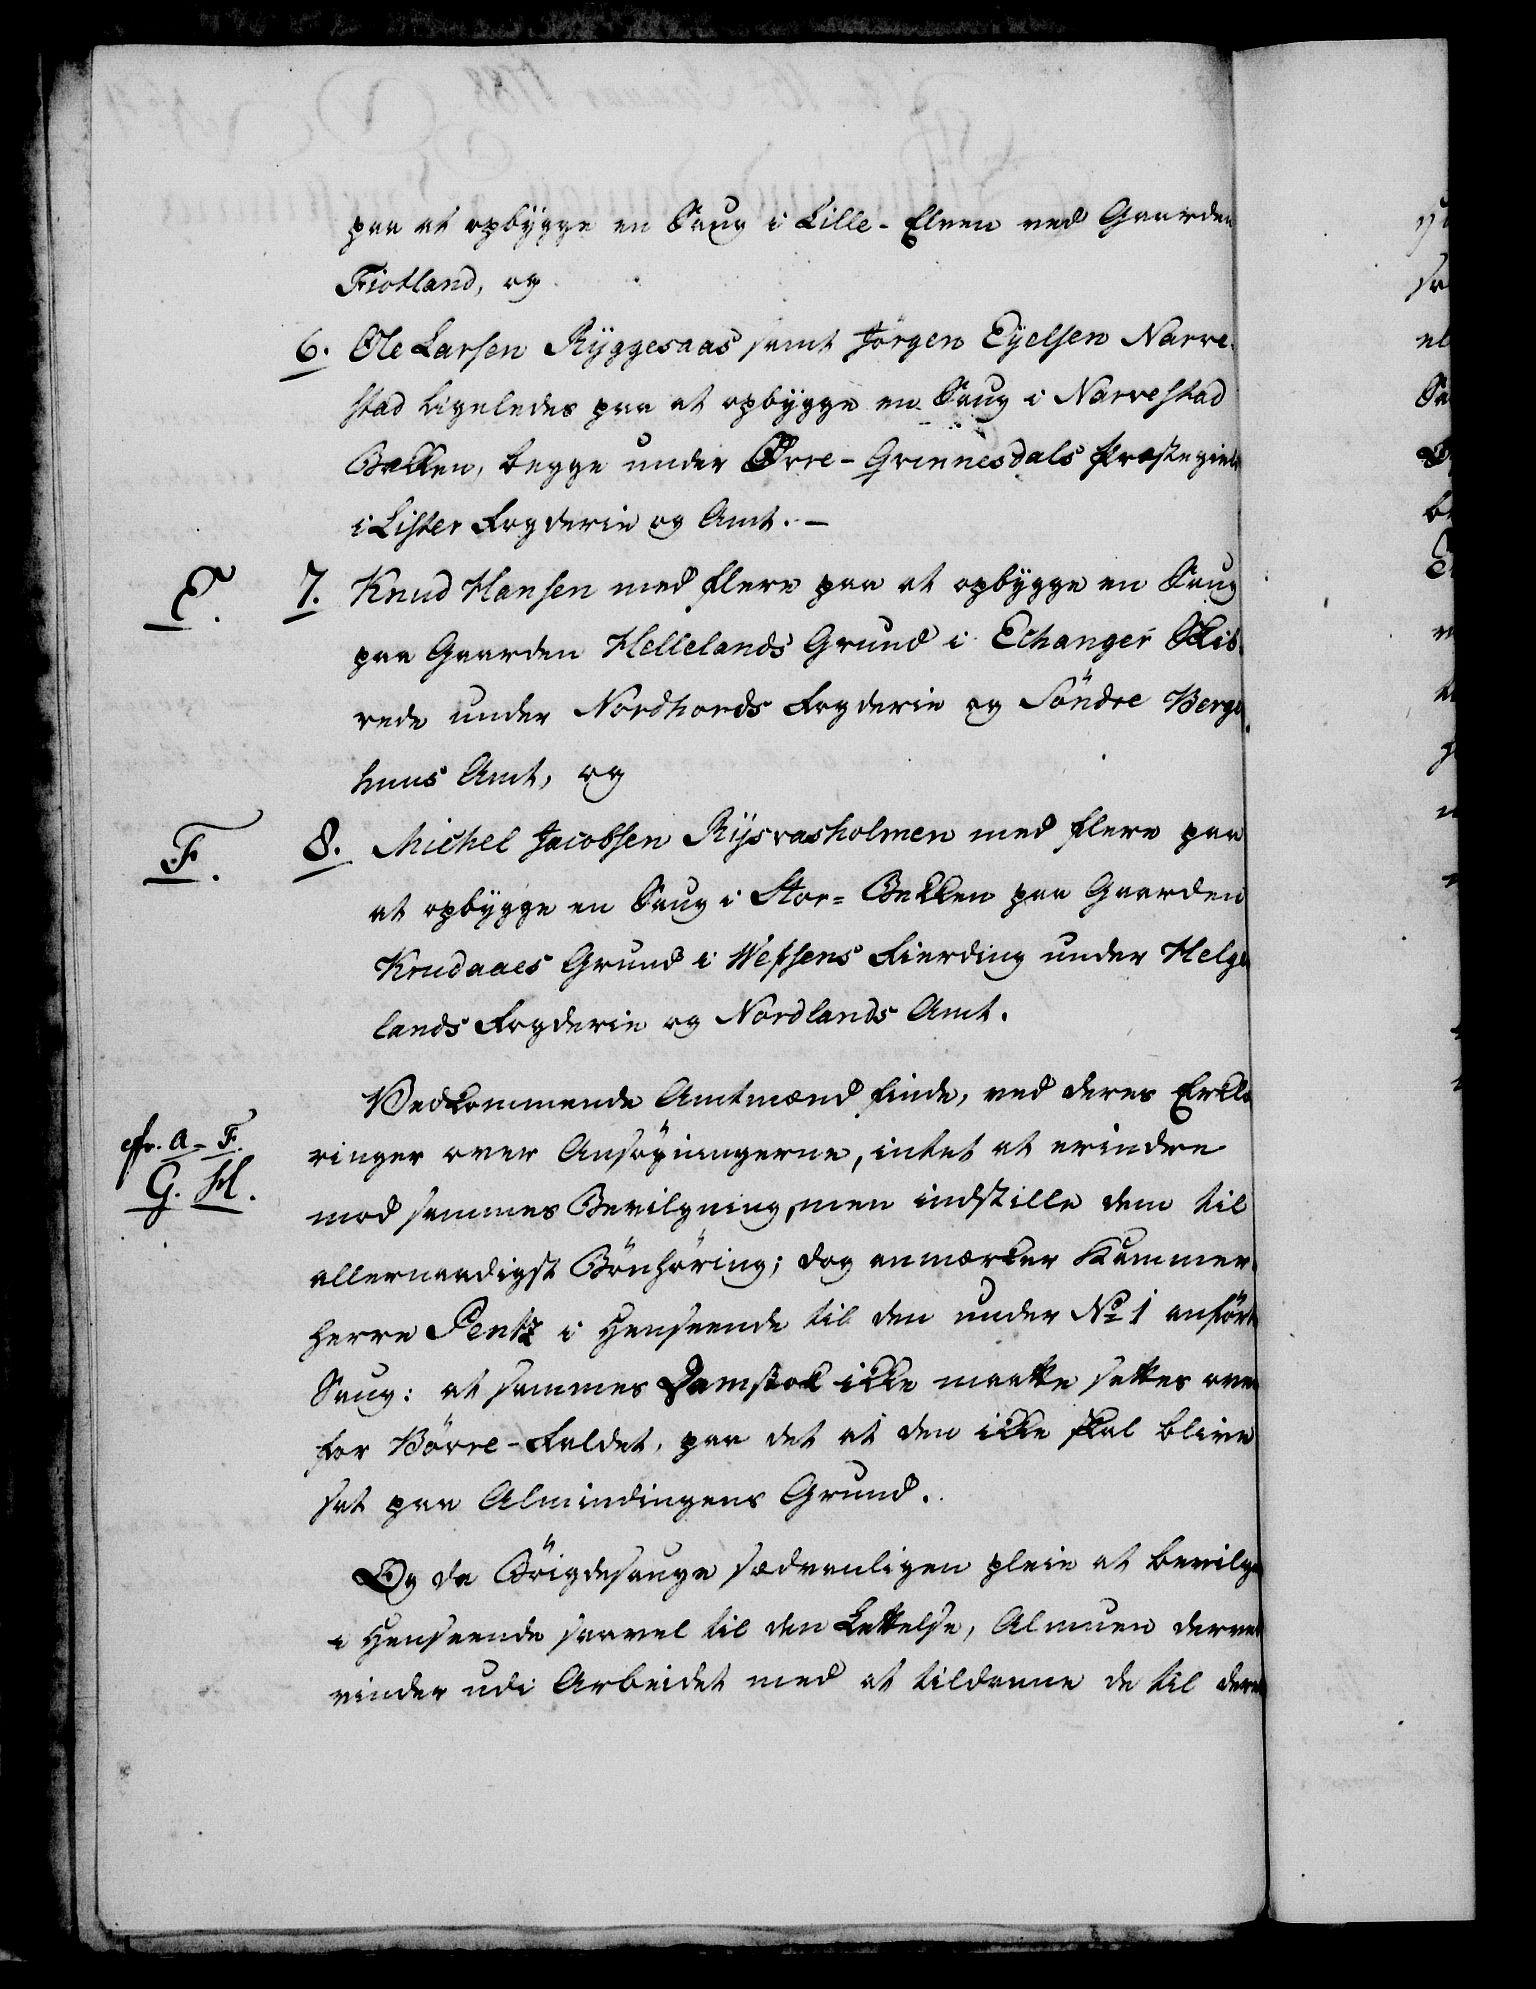 paa at opbygge en Saug i Lille-Elven ved Gaarden
Fiotland, og
6. Ole Larsen Ryggesaas samt Jörgen Eyelsen Narve-
stad ligeledes paa at opbygge en Saug i Narvestad
Bækken, begge under Övre-Qvinnesdals Præstegield
i Lister Fogderie og Amt. –
E. 7. Knud Hansen med flere paa at opbygge en Saug
paa Gaarden Hellelands Grund i Echanger Skib-
rede under Nordhords Fogderie og Söndre Berge-
huus Amt, og
F. 8. Michel Jacobsen Rysvasholmen med flere paa
at opbygge en Saug i Stor-Bekken paa Gaarden
Knudaaes Grund i Wefsens Fierding under Helge-
lands Fogderie og Nordlands Amt.
Vedkommende Amtmænd finde, ved deres Erklæ-
cfr. A-F. ringer over Ansøgningerne, intet at erindre
G. H. mod sammes Bevilgning, men indstille dem til
allernaadigst Bönhöring; dog anmærker Kammer-
herre Pentz i Henseende til den under No 1 anförte
Saug: at sammes Damstok ikke maatte sættes oven
for Börre-Faldet, paa det at den ikke skal blive
sat paa Almindingens Grund.
Og da Böigdesauge sædvanligen pleie at bevilges
i Henseende saavel til den Lettelse, Almuen derved
vinder udi Arbeidet med at tildanne de til deres